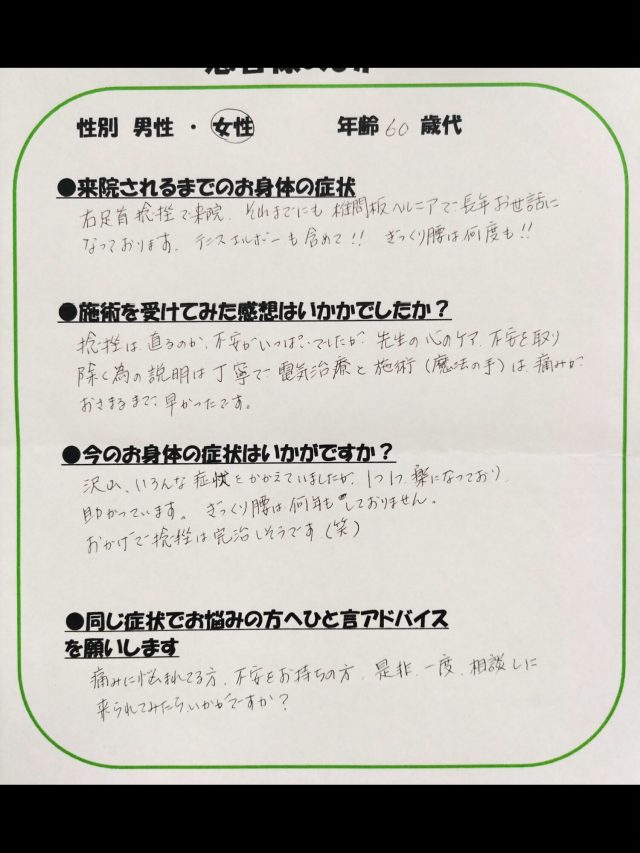 性別 男性 ・ 女性 年齢 60 歳代
●来院されるまでのお身体の症状
右足首捻挫で来院、それまでにも椎間板ヘルニアで長年お世話に
なっております。テニスエルボーも含めて!! ぎっくり腰は何度も!!
●施術を受けてみた感想はいかかでしたか？
捻挫は直るのか、不安がいっぱいでしたが 先生の心のケア、不安を取り
除く為の説明は丁寧で 電気治療と施術(魔法の手)は痛みが
おさまるまで、早かったです。
●今のお身体の症状はいかがですか？
沢山、いろんな症状をかかえていましたが、1つ1つ、楽になっており
助かっています。ぎっくり腰は何年もしておりません。
おかげで捻挫は完治しそうです(笑)
●同じ症状でお悩みの方へひと言アドバイス
を願いします
痛みに悩まれてる方、不安をお持ちの方、是非、一度、相談しに
来られてみたらいかがですか？